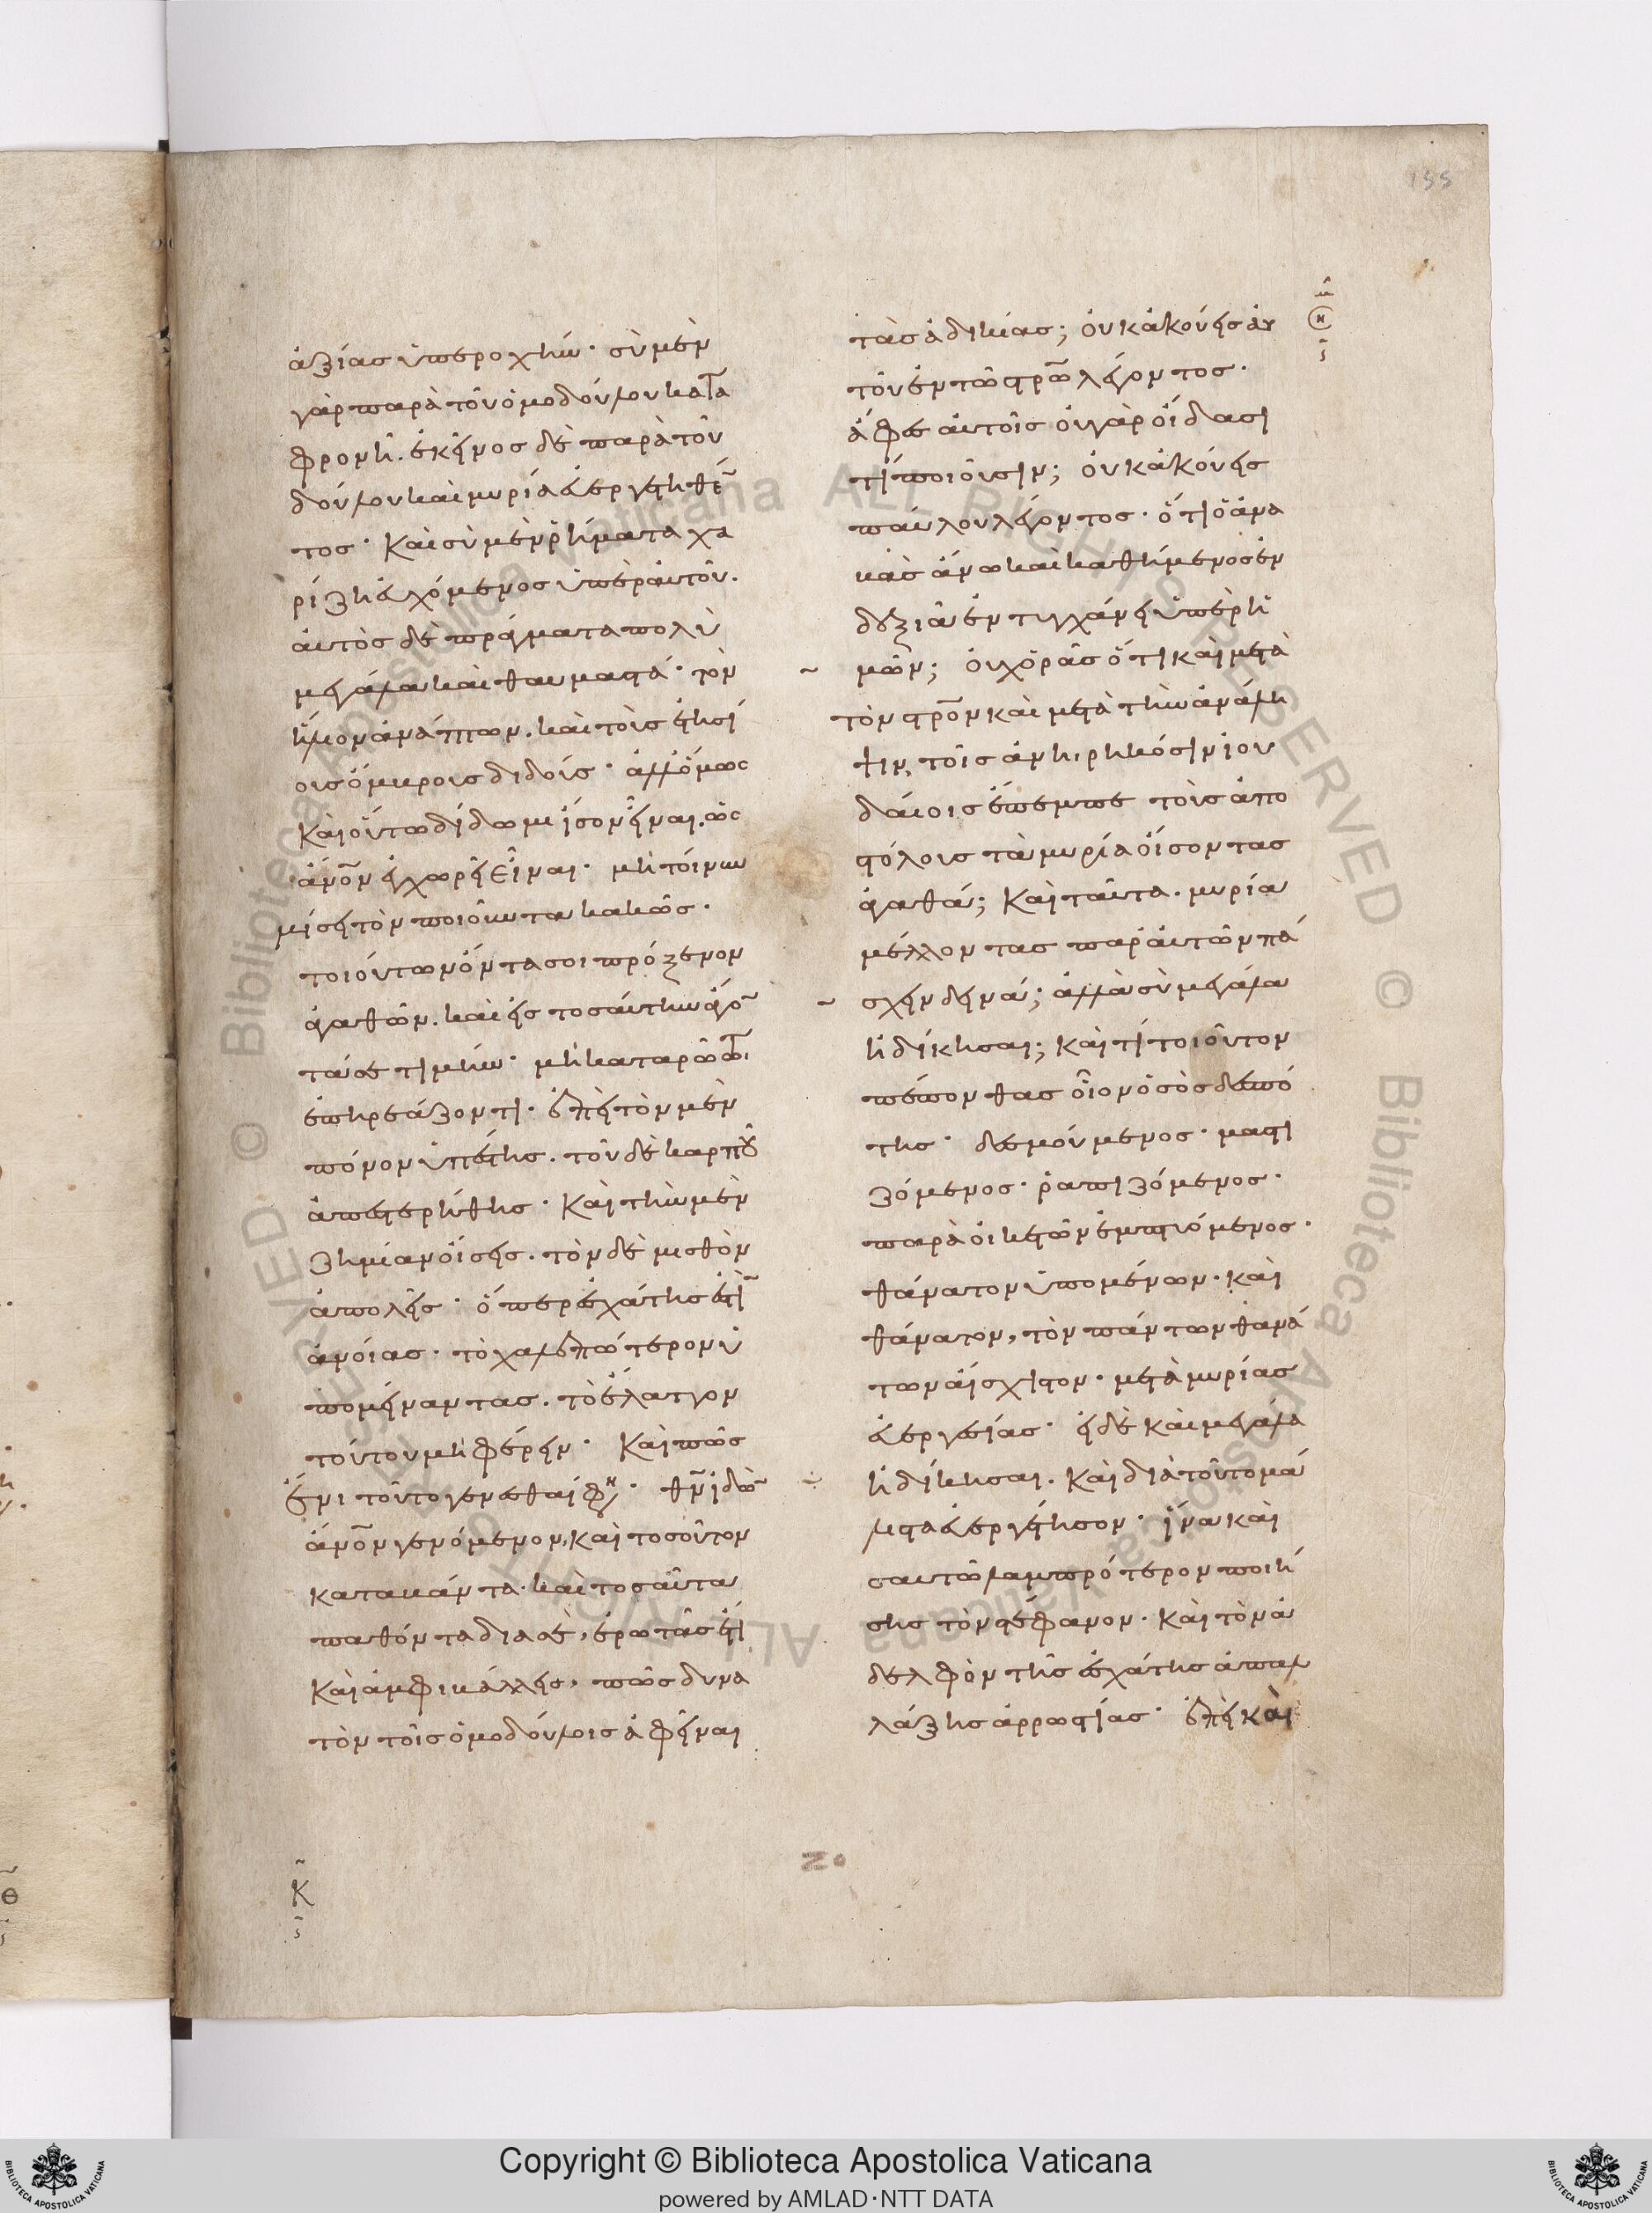 155
ἀξίας ὑπεροχήν· σὺ μὲν
γὰρ παρὰ τοῦ ὁμοδούλου κατα
φρονῆ. ἐκεῖνος δὲ παρὰ τοῦ
δούλου καὶ μυρία εὐεργετηθέν
τος· Καὶ σὺ μὲν ῥήματα χα
ρίζη εὐχόμενος ὑπὲρ αὐτοῦ.
αὐτὸς δὲ πράγματα πολὺ
μεγάλα καὶ θαυμαστά· τὸν
ἥλιον ἀνάπτων. καὶ τοὺς ἐτησί
ους ὄμβρους διδούς· ἀλλ' ὅμως
Καὶ οὕτω δίδωμι ἴσον εἶναι. ὡς
ἄνον ἐγχωρεῖ εἶναι· μὴ τοίνυν
μίσει τὸν ποιοῦντα κακῶς.
τοιούτων ὄντα σοι πρόξενον
ἀγαθῶν. καὶ εἰς τοσαύτην ἄγον
τά σε τιμήν· μὴ καταρῶ τῶ
ἐπηρεάζοντι· ἐπεὶ τὸν μὲν
πόνον ὑπέστης. τοῦ δὲ καρποῦ
ἀπεστερήθης· Καὶ τὴν μὲν
ζημίαν οἴσεις. τὸν δὲ μισθὸν
ἀπολεῖς· ὅπερ ἐσχάτης ἐστὶν
ἀνοίας· τὸ χαλεπώτερον ὑ
πομείναντας. τὸ ἔλαττον
τούτου μὴ φέρειν· Καὶ πῶς
ἔνι τοῦτο γενέσθαί φη· θν ἰδὼν
ἄνον γενόμενον, καὶ τοσοῦτον
καταβάντα· καὶ τοσαῦτα
παθόντα διὰ σέ, ἐρωτᾶς ἔτι
Καὶ ἀμφιβάλλεις, πῶς δυνα
τὸν τοῖς ὁμοδούλοις ἀφεῖναι
τὰς ἀδικίας; οὐκ ἀκούεις αὐ
τοῦ ἐν τῶ στρῶ λέγοντος·
ἄφες αὐτοῖς οὐ γὰρ οἴδασι
τί ποιοῦσιν; οὐκ ἀκούεις
παύλου λέγοντος· ὅτι ὁ ἀνα
βὰς ἄνω καὶ καθήμενος ἐν
δεξιᾶ ἐντυγχάνει ὑπὲρ ἡ
μῶν; οὐχ ὁρᾶς ὅτι καὶ μετὰ
τὸν στρον καὶ μετὰ τὴν ἀνάλη
ψιν, τοῖς ἀνηρηκόσιν ἰου
δαίοις ἔπεμπε τοὺς ἀπο
στόλους τὰ μυρία οἴσοντας
ἀγαθά; Καὶ ταῦτα. μυρία
μέλλοντας παρ' αὐτῶν πά
σχειν δεινά; ἀλλὰ σὺ μεγάλα
ἠδίκησαι; καὶ τί τοιοῦτον
πέπονθας οἷον ὁ σὸς δεσπό
της· δεσμούμενος· μαστι
ζόμενος· ῥαπιζόμενος·
παρὰ οἰκετῶν ἐμπτυόμενος·
θάνατον ὑπομένων· καὶ
θάνατον, τὸν πάντων θανά
των αἴσχιστον· μετὰ μυρίας
εὐεργεσίας· εἰ δὲ καὶ μεγάλα
ἠδίκησαι. Καὶ διὰ τοῦτο μά
λιστα εὐεργέτησον· ἵνα καὶ
σαυτῶ λαμπρότερον ποιή
σης τὸν στέφανον· Καὶ τὸν ἀ
δελφὸν τῆς ἐσχάτης ἀπαλ
λάξης ἀρρωστίας· ἐπεὶ καὶ
Κ
Copyright © Biblioteca Apostolica Vaticana
powered by AMLAD·NTT DATA